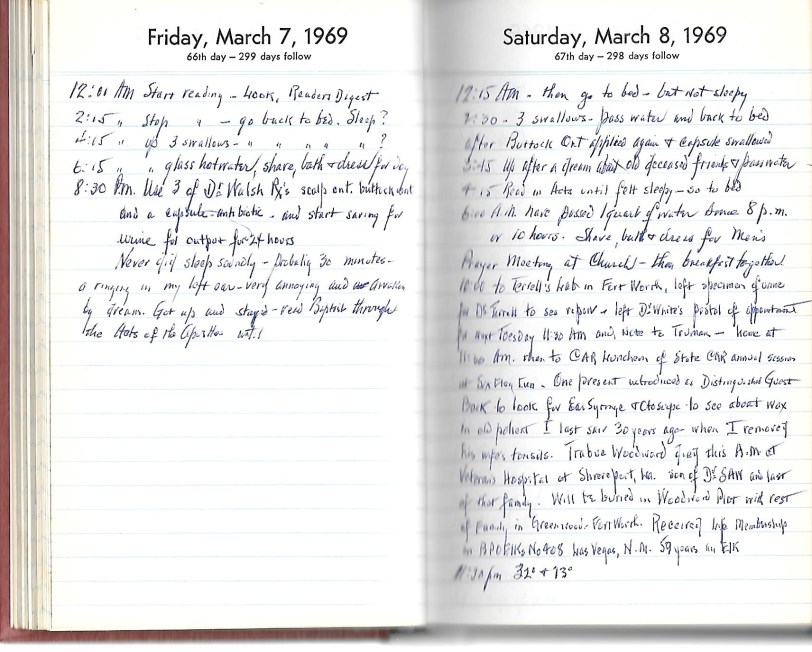 Friday, March 7, 1969
66th day – 299 days follow
12:01 AM Start reading – Look, Readers Digest
2:15 " Stop " – go back to bed. Sleep?
4:15 " up 3 swallows – " " " " " ?
6:15 " " glass hot water, shave, bath & dress for day
8:30 Am. Use 3 of Dr Walsh Rx's scalp ont. buttock ont
and a capsule antibiotic – and start saving for
urine for output for 24 hours
Never did sleep soundly – Probably 30 minutes –
a ringing in my left ear – very annoying and
by dream. Got up and stayed – read Baptist through
the Acts of the Apostles
Saturday, March 8, 1969
67th day – 298 days follow
12:15 AM – then go to bed – but not sleepy
2:30 – 3 swallows – pass water and back to bed
after Buttock Ont applied again & capsule swallowed
3:15 Up after a dream about old deceased friends & pass water –
4:15 Read in Acts until felt sleepy – so to bed
6:00 A.M. have passed 1 quart of water since 8 p.m.
or 10 hours. Shave, bath & dress for Men's
Prayer Meeting at Church – then breakfast together
10:00 to Terrell's Lab in Fort Worth, left specimen of urine
for Dr Terrell to see report – left Dr White's postal of appointment
for next Tuesday 11:30 AM and note to Truman – home at
11:00 AM. then to CAR Luncheon of State CAR annual session
at Six Flag Inn – One present introduced as Distinguished Guest
Back to look for Ear Syringe & Otoscope to see about wax
in old patient I last saw 30 years ago – when I removed
his wife's tonsils. Trabue Woodward died this A.M. at
Veterans Hospital at Shreveport, La. son of Dr SAW and last
of that family. Will be buried in Woodward Plot with rest
of family in Greenwood – Fort Worth. Received Life Membership
in BPOElks No 408 Las Vegas, N.M. 59 years an Elk
11:30 pm 32° & 73°